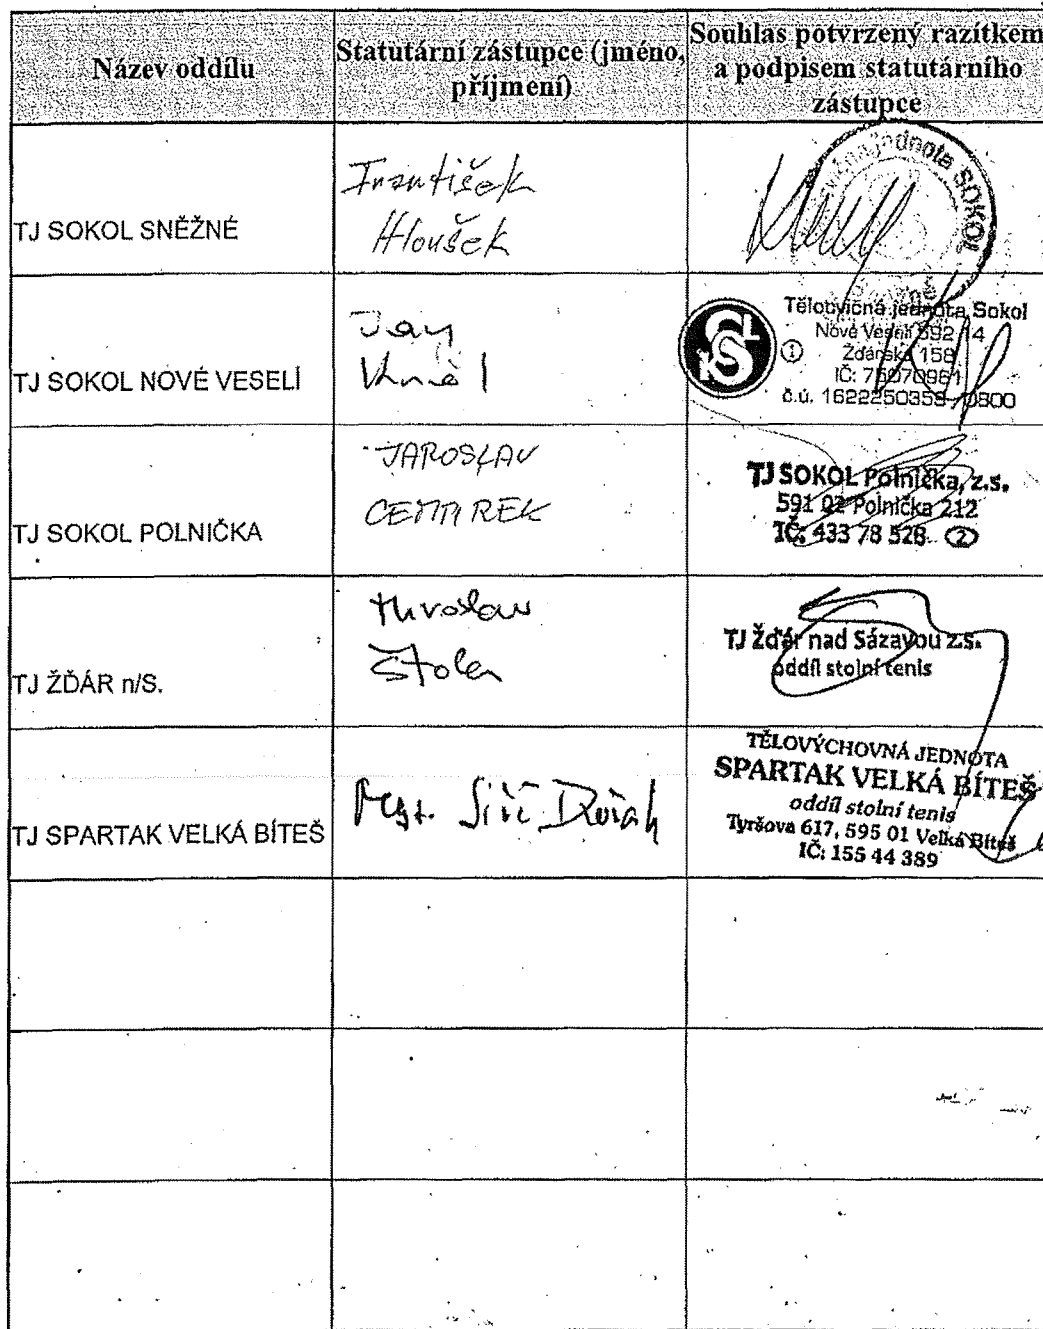 Název oddílu
Statutární zástupce (jméno,
příjmení)
Souhlas potvrzený razítkem
a podpisem statutárního
zástupce
TJ SOKOL SNĚŽNÉ
František
Hloušek
jednota SOKOL
TJ SOKOL NOVÉ VESELÍ
Jan
Tělocvičná jednota Sokol
Nové Veselí 592 14
Žďárská 158
IČ: 75070961
č.ú. 1622250359/0800
1
TJ SOKOL POLNIČKA
JAROSLAV
TJ SOKOL Polnička, z.s.
591 02 Polnička 212
IČ: 433 78 528 2
TJ ŽĎÁR n/S.
TJ Žďár nad Sázavou z.s.
oddíl stolní tenis
TJ SPARTAK VELKÁ BÍTEŠ
Mgr. Jiří Dvořák
TĚLOVÝCHOVNÁ JEDNOTA
SPARTAK VELKÁ BÍTEŠ
oddíl stolní tenis
Tyršova 617, 595 01 Velká Bíteš
IČ: 155 44 389